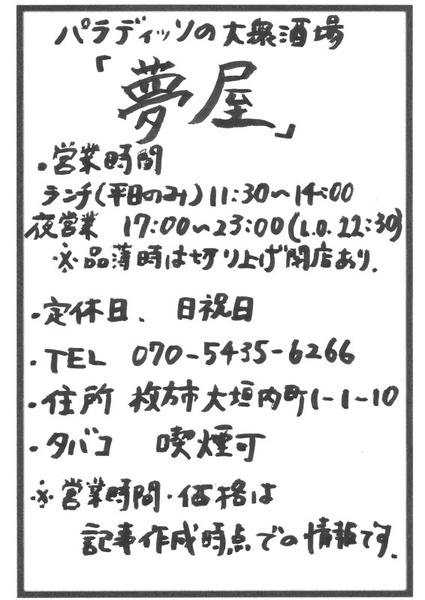 パラディッソの大衆酒場
「夢屋」
・営業時間
ランチ(平日のみ)11:30〜14:00
夜営業 17:00〜23:00(L.O.22:30)
※品薄時は切り上げ閉店あり.
・定休日、日祝日
・TEL 070-5435-6266
・住所 枚方市大垣内町1-1-10
・タバコ 喫煙可
※営業時間・価格は
記事作成時点での情報です.